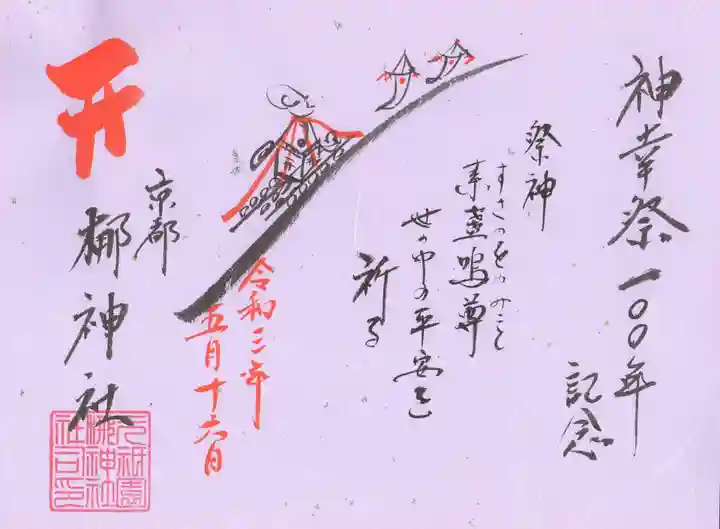 神幸祭一〇〇年
記念
祭神
すさのをのみこと
素盞嗚尊
世の中の平安を
祈る
令和三年
五月十六日
京都
梛神社
元祇園
梛神社
社司之印